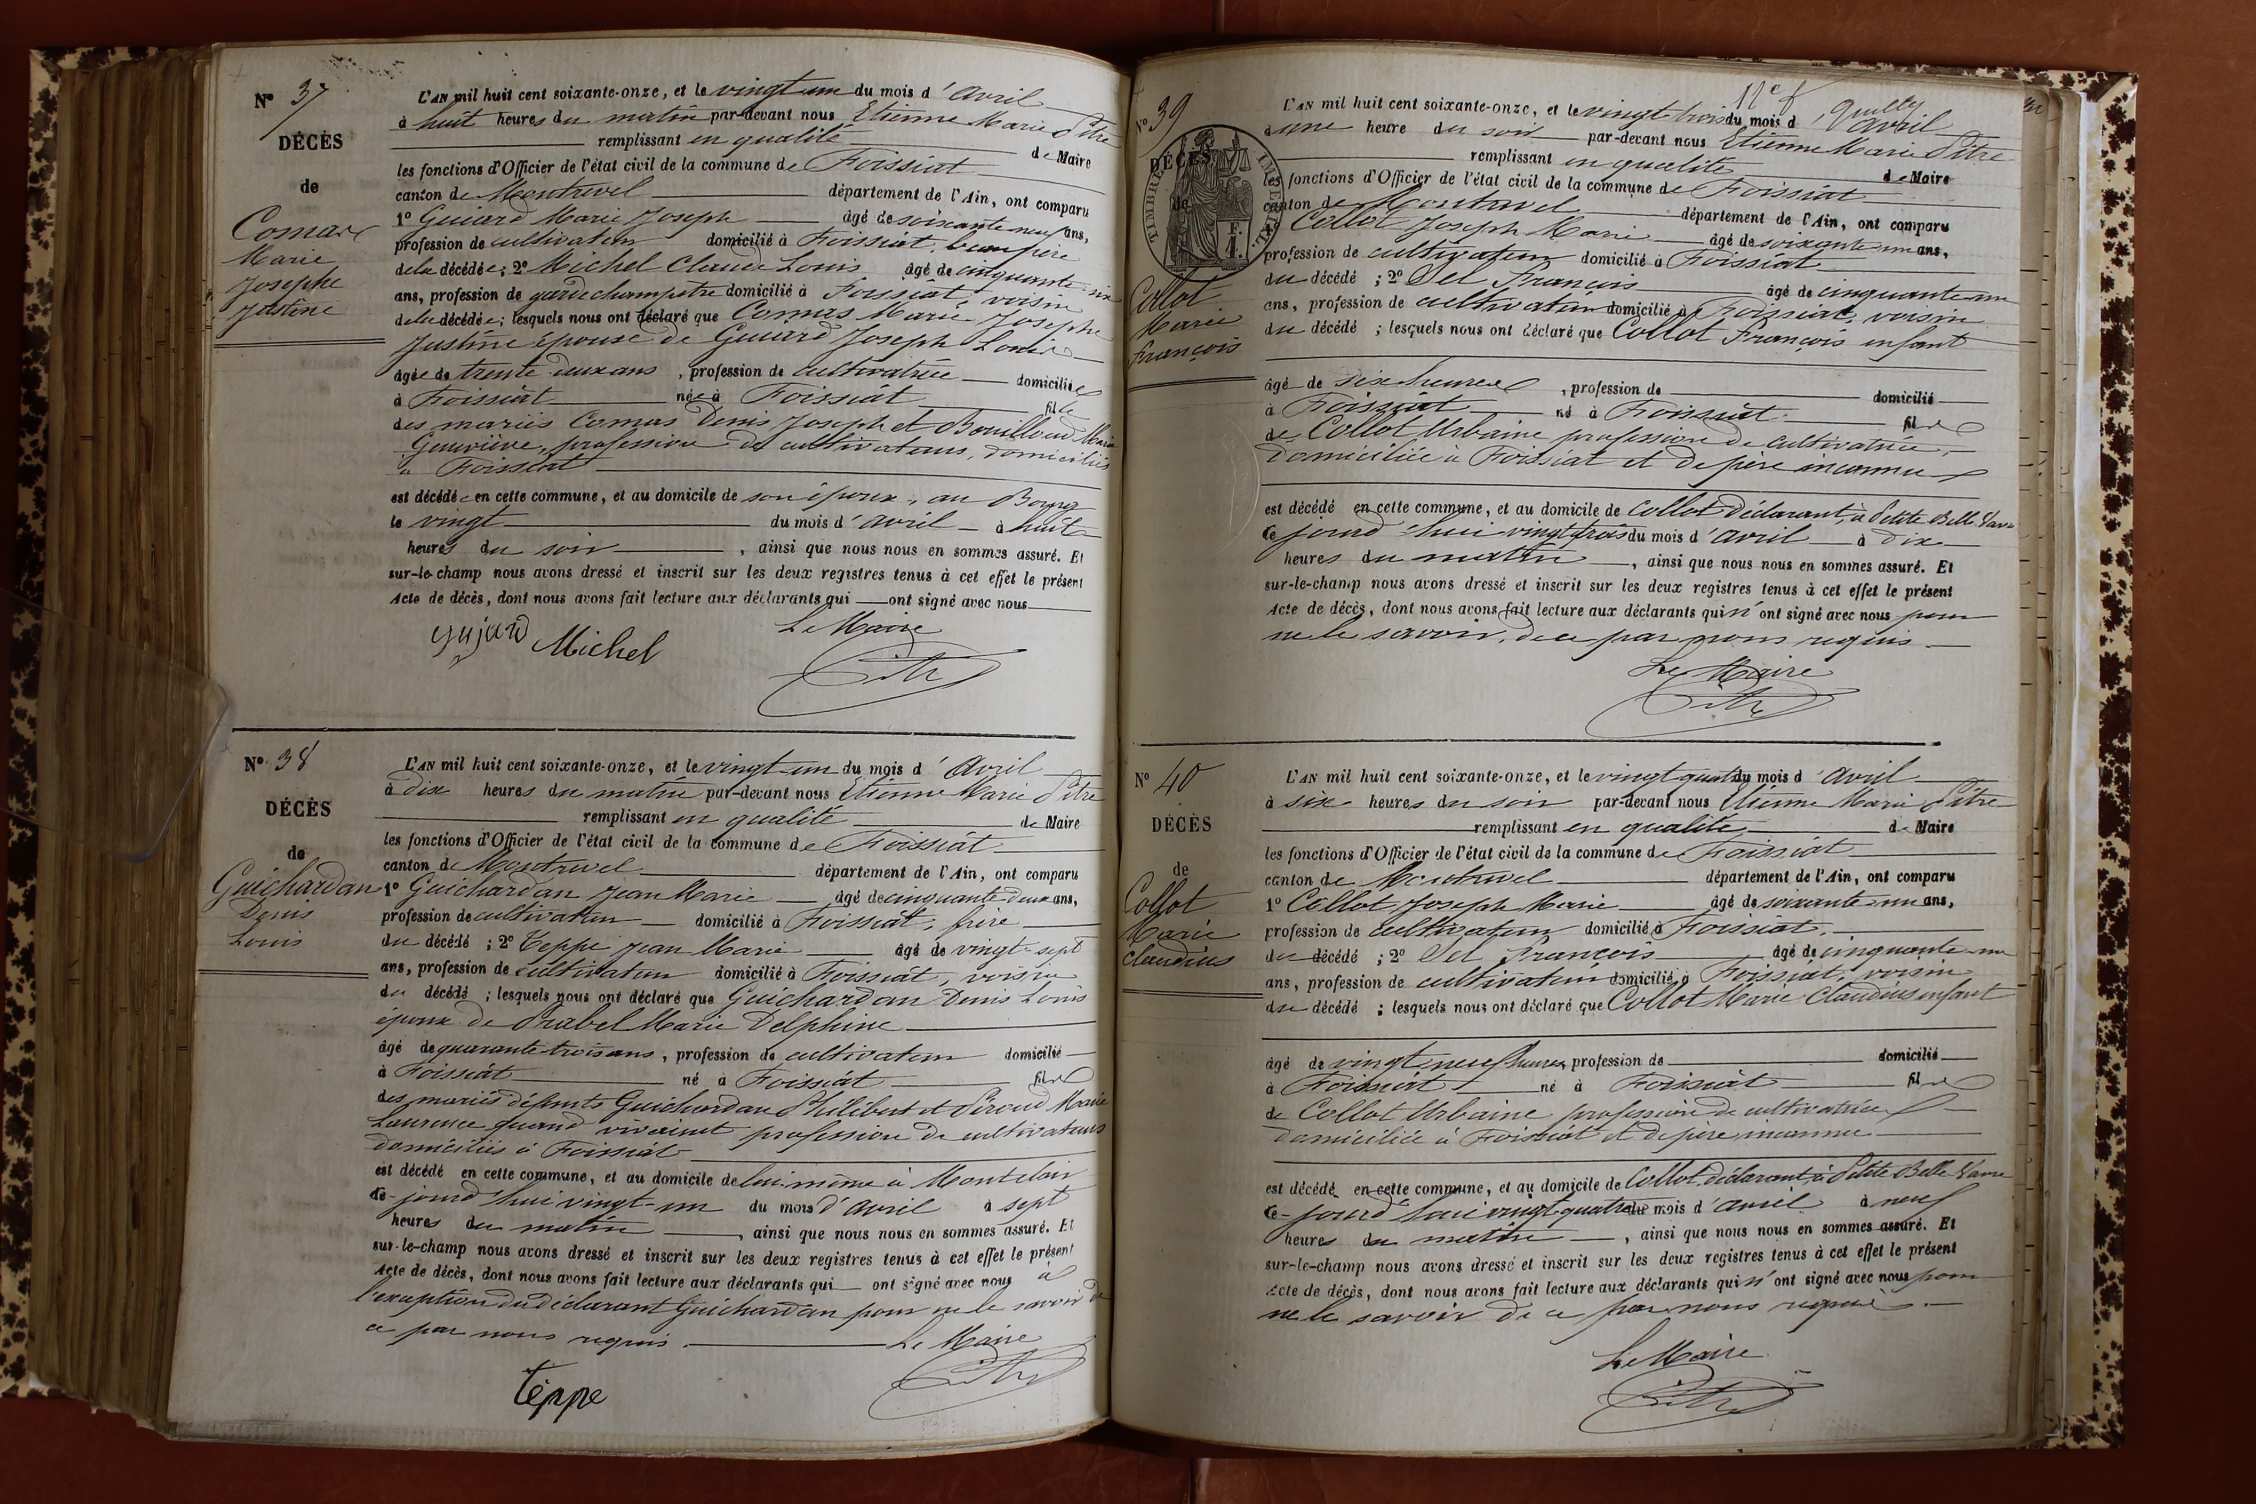 N° 37
DÉCÈS
de
Comas
Marie
Josephe
Justine
L'AN mil huit cent soixante-onze, et le vingt un du mois d'avril
à huit heures du matin par-devant nous Etienne Marie Pitre
remplissant en qualité de Maire
les fonctions d'Officier de l'état civil de la commune de Foissiat
canton de Montrevel département de l'Ain, ont comparu
1° Guiard Marie Joseph âgé de soixante neuf ans,
profession de cultivateur domicilié à Foissiat, beau père
de la décédée; 2° Michel Claude Louis âgé de cinquante six
ans, profession de garde champêtre domicilié à Foissiat, voisin
de la décédée; lesquels nous ont déclaré que Comas Marie Josephe
Justine épouse de Guiard Joseph Louis
âgée de trente deux ans, profession de cultivatrice domiciliée
à Foissiat née à Foissiat fille
des mariés Comas Denis Joseph et Bouilloud Marie
Geneviève, profession de cultivateurs, domiciliés
à Foissiat
est décédée en cette commune, et au domicile de son époux, au Bourg
le vingt du mois d'avril à huit
heures du soir, ainsi que nous nous en sommes assuré. Et
sur-le-champ nous avons dressé et inscrit sur les deux registres tenus à cet effet le présent
Acte de décès, dont nous avons fait lecture aux déclarants qui ont signé avec nous
Le Maire
gujard Michel Pitre
N° 38
DÉCÈS
de
Guichardan
Denis
Louis
L'AN mil huit cent soixante-onze, et le vingt-un du mois d'avril
à dix heures du matin par-devant nous Etienne Marie Pitre
remplissant en qualité de Maire
les fonctions d'Officier de l'état civil de la commune de Foissiat
canton de Montrevel département de l'Ain, ont comparu
1° Guichardan Jean Marie âgé de cinquante deux ans,
profession de cultivateur domicilié à Foissiat, frère
du décédé; 2° Teppe Jean Marie âgé de vingt-sept
ans, profession de cultivateur domicilié à Foissiat, voisin
du décédé; lesquels nous ont déclaré que Guichardan Denis Louis
époux de Prabel Marie Delphine
âgé de quarante-trois ans, profession de cultivateur domicilié
à Foissiat né à Foissiat fils
des mariés défunts Guichardan Philibert et Péroud Marie
Laurence quand vivaient profession de cultivateurs
domiciliés à Foissiat
est décédé en cette commune, et au domicile de lui même à Montclair
ce jourd'hui vingt-un du mois d'avril à sept
heures du matin, ainsi que nous nous en sommes assuré. Et
sur-le-champ nous avons dressé et inscrit sur les deux registres tenus à cet effet le présent
Acte de décès, dont nous avons fait lecture aux déclarants qui ont signé avec nous à
l'exception du déclarant Guichardan pour ne le savoir de
ce par nous requis.
Le Maire
Teppe Pitre
N° 39
TIMBRE IMPÉRIAL
F. 1.
DÉCÈS
de
Collot
Marie
François
L'AN mil huit cent soixante-onze, et le vingt trois du mois d'avril
à une heure du soir par-devant nous Etienne Marie Pitre
remplissant en qualité de Maire
les fonctions d'Officier de l'état civil de la commune de Foissiat
canton de Montrevel département de l'Ain, ont comparu
Collot Joseph Marie âgé de soixante un ans,
profession de cultivateur domicilié à Foissiat
du décédé; 2° Sel François âgé de cinquante-un
ans, profession de cultivateur domicilié à Foissiat, voisin
du décédé; lesquels nous ont déclaré que Collot François enfant
âgé de six heures, profession de domicilié
à Foissiat né à Foissiat fils
de Collot Urbaine profession de cultivatrice,
domiciliée à Foissiat et de père inconnu
est décédé en cette commune, et au domicile de Collot déclarant, à Petite Belle Vavre
ce jourd'hui vingt trois du mois d'avril à dix
heures du matin, ainsi que nous nous en sommes assuré. Et
sur-le-champ nous avons dressé et inscrit sur les deux registres tenus à cet effet le présent
Acte de décès, dont nous avons fait lecture aux déclarants qui n'ont signé avec nous pour
ne le savoir, de ce par nous requis
Le Maire
Pitre
N° 40
DÉCÈS
de
Collot
Marie
Claudius
L'AN mil huit cent soixante-onze, et le vingt quatre du mois d'avril
à six heures du soir par-devant nous Etienne Marie Pitre
remplissant en qualité de Maire
les fonctions d'Officier de l'état civil de la commune de Foissiat
canton de Montrevel département de l'Ain, ont comparu
1° Collot Joseph Marie âgé de soixante-un ans,
profession de cultivateur domicilié à Foissiat,
du décédé; 2° Sel François âgé de cinquante-un
ans, profession de cultivateur domicilié à Foissiat, voisin
du décédé; lesquels nous ont déclaré que Collot Marie Claudius enfant
âgé de vingt neuf heures, profession de domicilié
à Foissiat né à Foissiat fils
de Collot Urbaine profession de cultivatrice
domiciliée à Foissiat et de père inconnu
est décédé en cette commune, et au domicile de Collot déclarant, à Petite Belle Vavre
ce jourd'hui vingt-quatre du mois d'avril à neuf
heures du matin, ainsi que nous nous en sommes assuré. Et
sur-le-champ nous avons dressé et inscrit sur les deux registres tenus à cet effet le présent
Acte de décès, dont nous avons fait lecture aux déclarants qui n'ont signé avec nous pour
ne le savoir de ce par nous requis.
Le Maire
Pitre